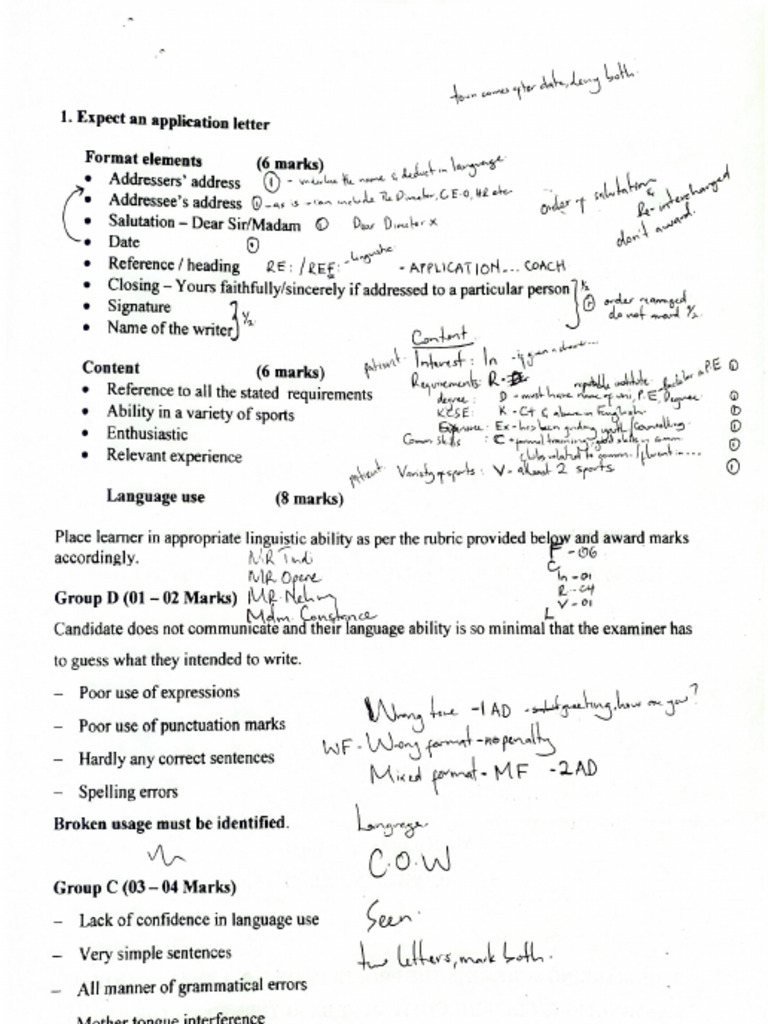 town comes after date, deny both.
1. Expect an application letter
Format elements (6 marks)
• Addressers' address ① - the name & deduct in language
• Addressee's address ① - as is - can include The Director, C.E.O, HR etc
order of salutation & Re - interchanged don't award.
• Salutation – Dear Sir/Madam ① Dear Director x
• Date ①
• Reference / heading RE: / REF: - linguistic - APPLICATION... COACH
• Closing – Yours faithfully/sincerely if addressed to a particular person ½
• Signature
• Name of the writer ½
① order rearranged do not award ½.
Content
Content (6 marks)
Interest: In -
• Reference to all the stated requirements
Requirements: R -
• Ability in a variety of sports
degree: D - must have name of uni, P.E, Degree ①
• Enthusiastic
KCSE: K - C+ & above in English ①
• Relevant experience
Experience: Ex - has been guiding youth/counselling ①
Comm skills: C - formal training/good skills in comm ①
clubs related to comm. / fluent in...
Variety of sports: V - atleast 2 sports ①
Language use (8 marks)
Place learner in appropriate linguistic ability as per the rubric provided below and award marks
accordingly.
MR Tindi
MR Opere
F - 06
C
In - 01
R - 04
V - 01
L
Group D (01 – 02 Marks) MR. Nehmy
Mdm. Constance
Candidate does not communicate and their language ability is so minimal that the examiner has
to guess what they intended to write.
– Poor use of expressions
Wrong tone -1AD - greeting, how are you?
– Poor use of punctuation marks
WF - Wrong format - no penalty
– Hardly any correct sentences
Mixed format - MF -2AD
– Spelling errors
Broken usage must be identified.
Language
C.O.W
Group C (03 – 04 Marks)
– Lack of confidence in language use
Seen.
– Very simple sentences
two letters, mark both.
– All manner of grammatical errors
Mother tongue interference